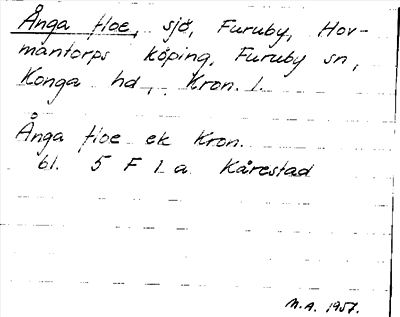 Ånga floe, sjö, Furuby, Hov-
mantorps köping, Furuby sn,
Konga hd, Kron. l.
Ånga floe ek Kron.
bl. 5 F 1 a Kårestad
M.A. 1957.